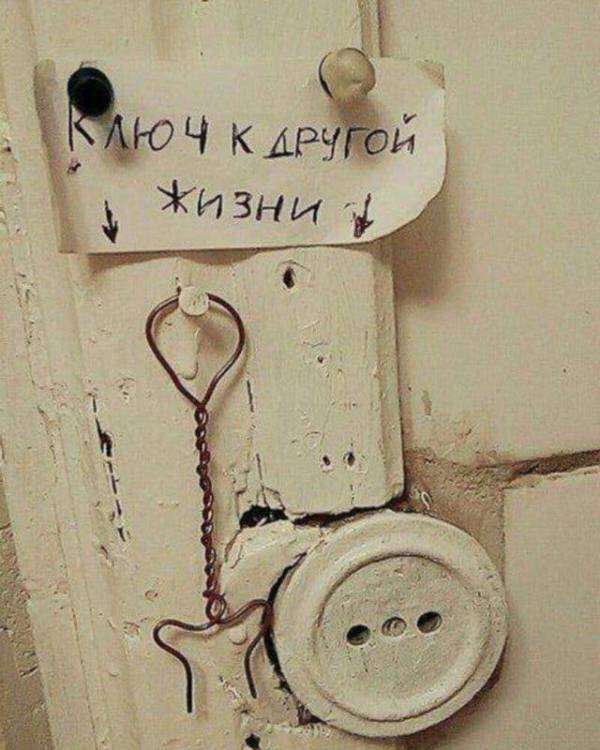 КЛЮЧ К ДРУГОЙ
ЖИЗНИ